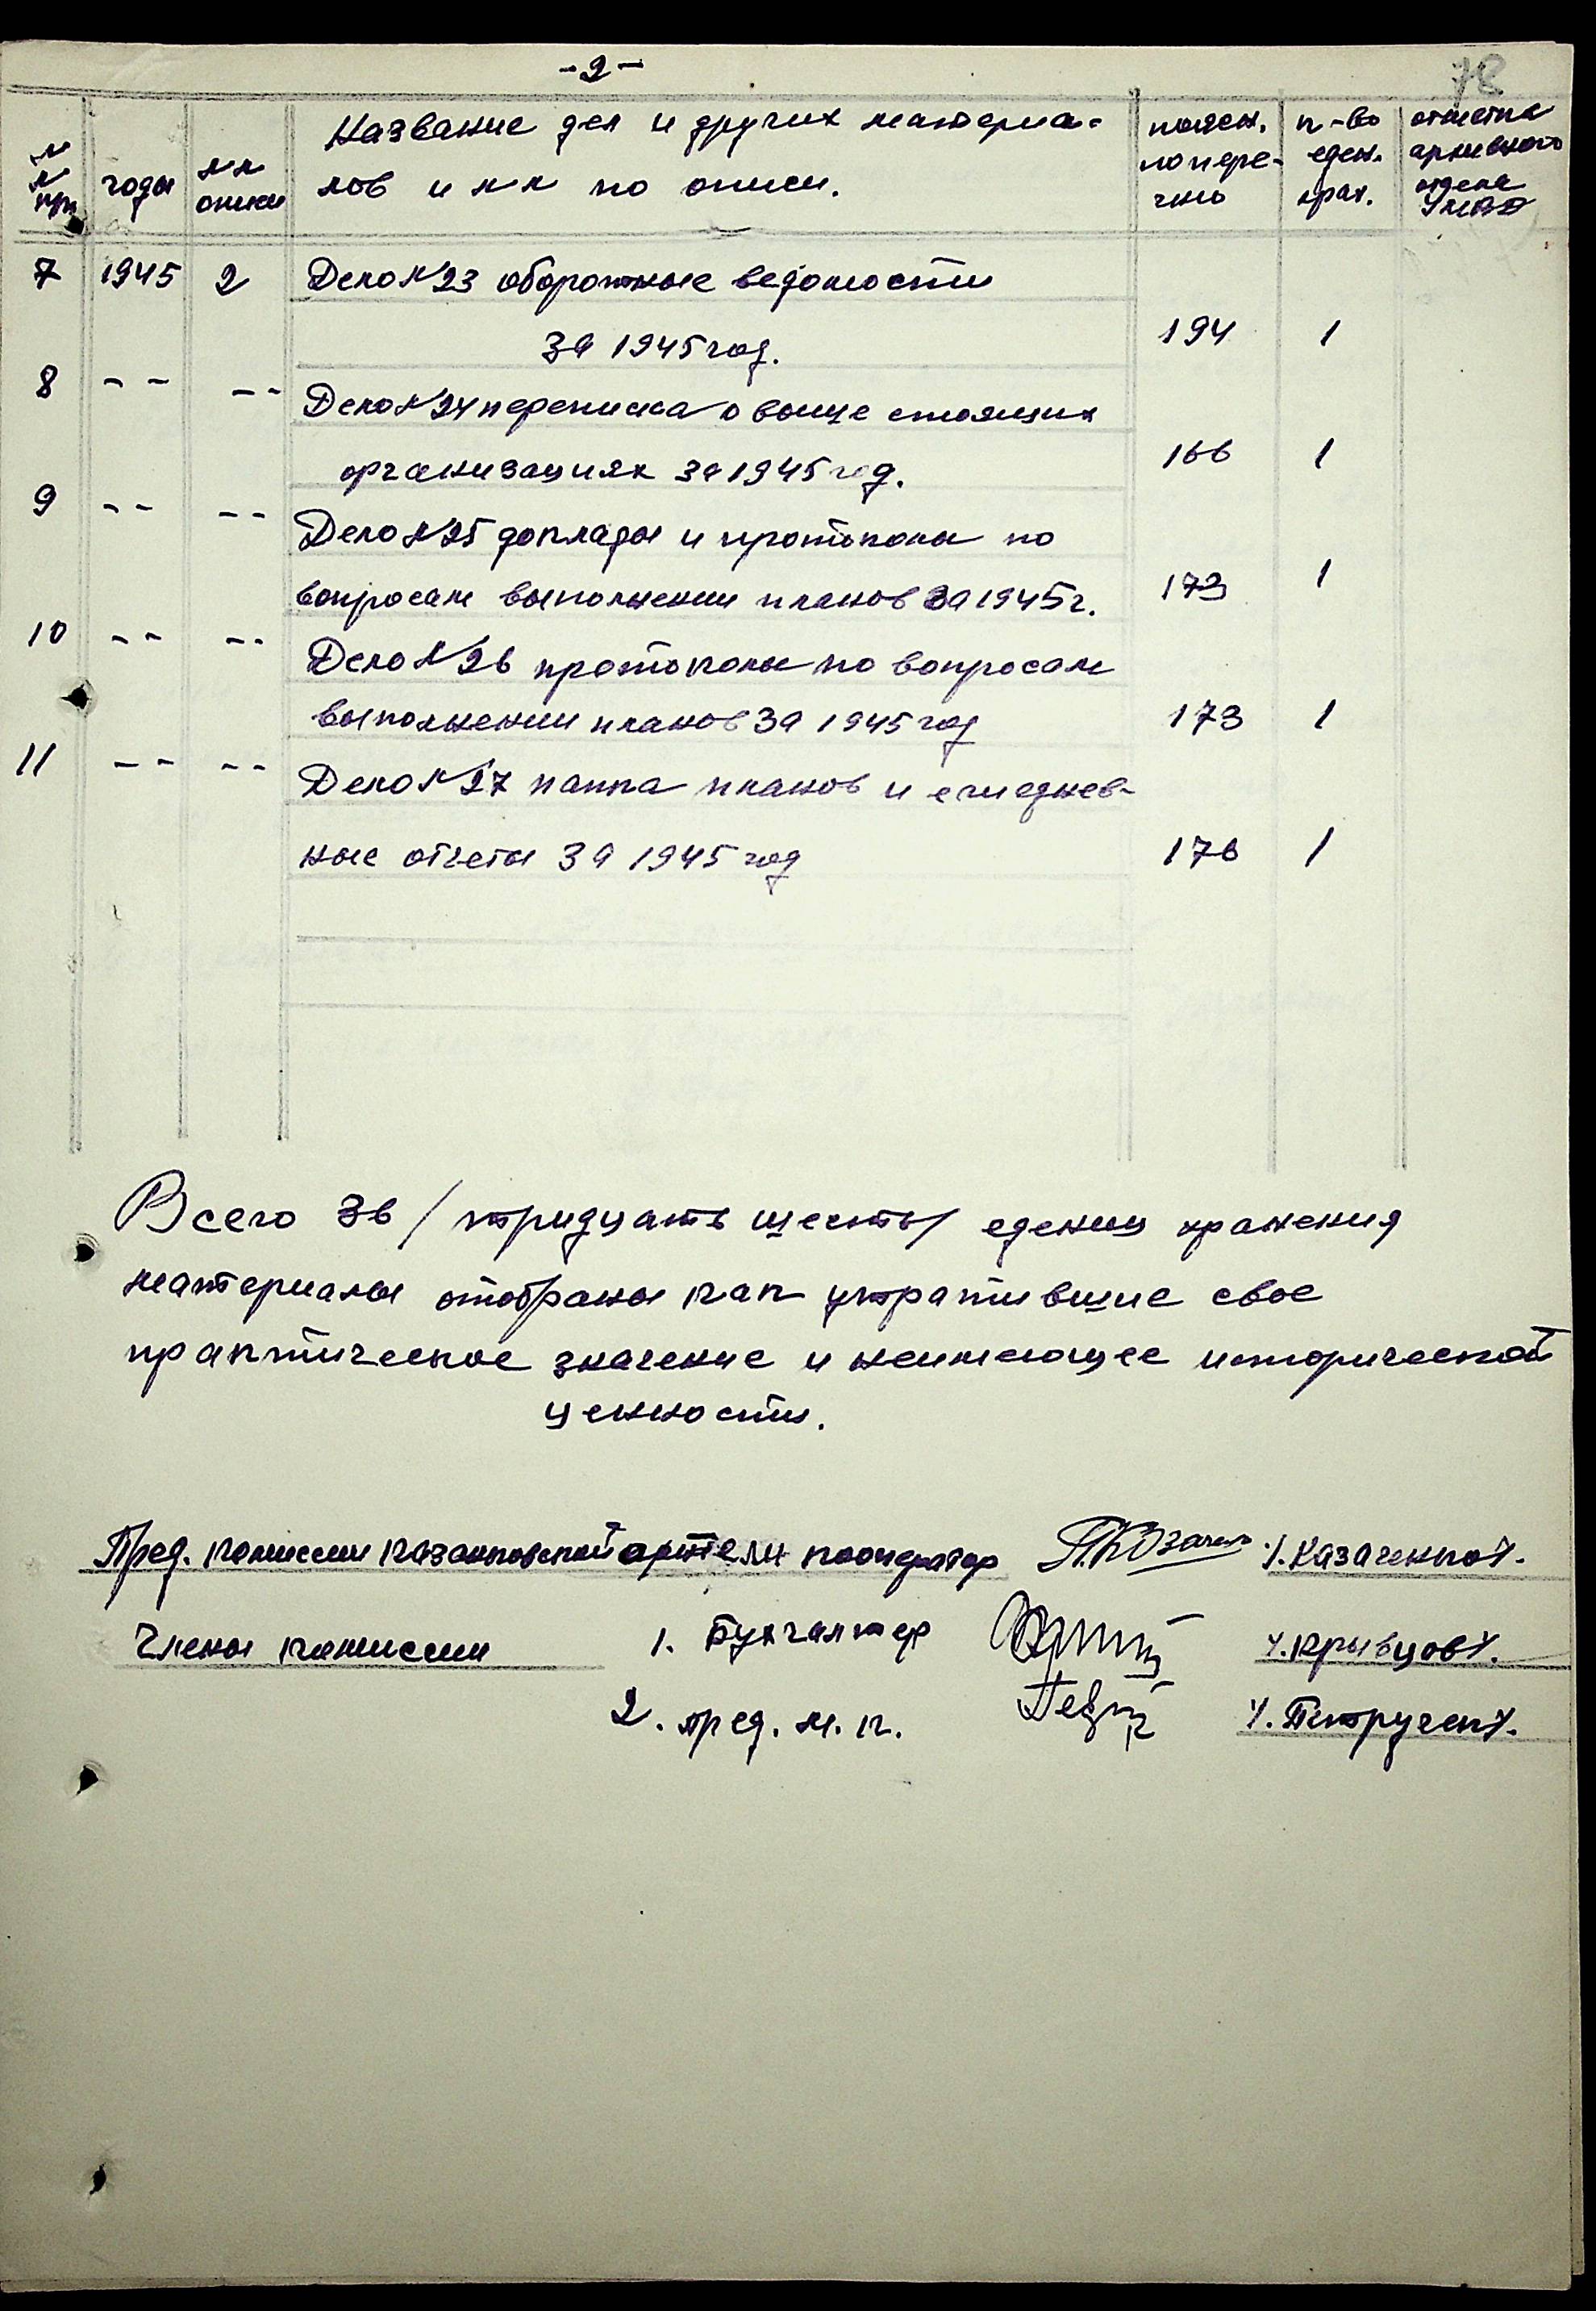 -2-
78
№№ пп годы №№ описи Название дел и других материа- поясн. к-во отметка
лов и №№ по описи. по пере- еден. архивного
чню хран. отдела УМВД
7 1945 2 Дело №23 оборотные ведомости
за 1945 год. 194 1
8 -- -- Дело №24 переписка о выше стоящих
организациях за 1945 год. 166 1
9 -- -- Дело №25 доклады и протоколы по
вопросам выполнении планов за 1945 г. 173 1
10 -- -- Дело №26 протоколы по вопросам
выполнении планов за 1945 год 173 1
11 -- -- Дело №27 папка планов и ежеднев-
ные отчеты за 1945 год 176 1
Всего 36 /тридцать шесть/ едениц хранения
материалы отобраны как утратившие свое
практическое значение и неимеющее исторической
ценности.
Пред. комиссии казанковской артели кооператор /.Казаченко/.
Члены комиссии 1. Бухгалтер /.Крывцов/.
2. пред. м. к. /.Петручек/.